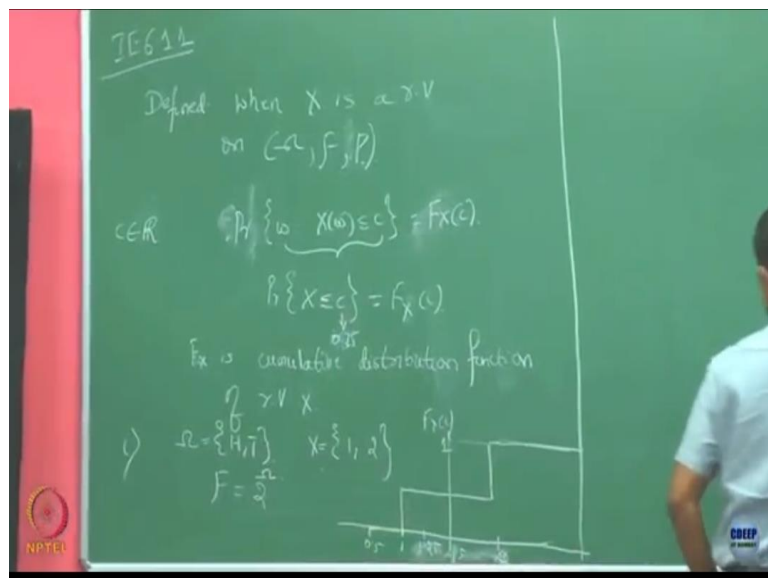 IE611
Defined when X is a r.V
on (Ω, F, P)
C∈R Pr { ω X(ω) ≤ c } = Fx(c).
Pr { X ≤ c } = Fx(c).
0.25
Fx is cumulative distribution function
of r.V X
1) Ω = {H,T} X = {1, 2} Fx(c)
F = 2^Ω
1
0.5 1 1.25 1.5 2
NPTEL
CDEEP
IIT BOMBAY